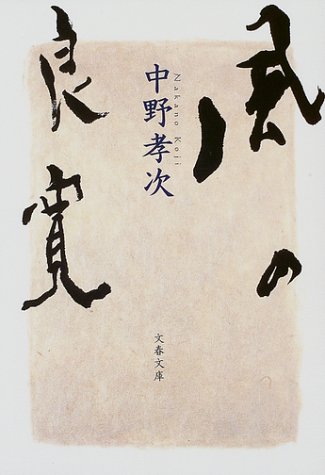 風の
良寛
中野孝次
Nakano Koji
文春文庫